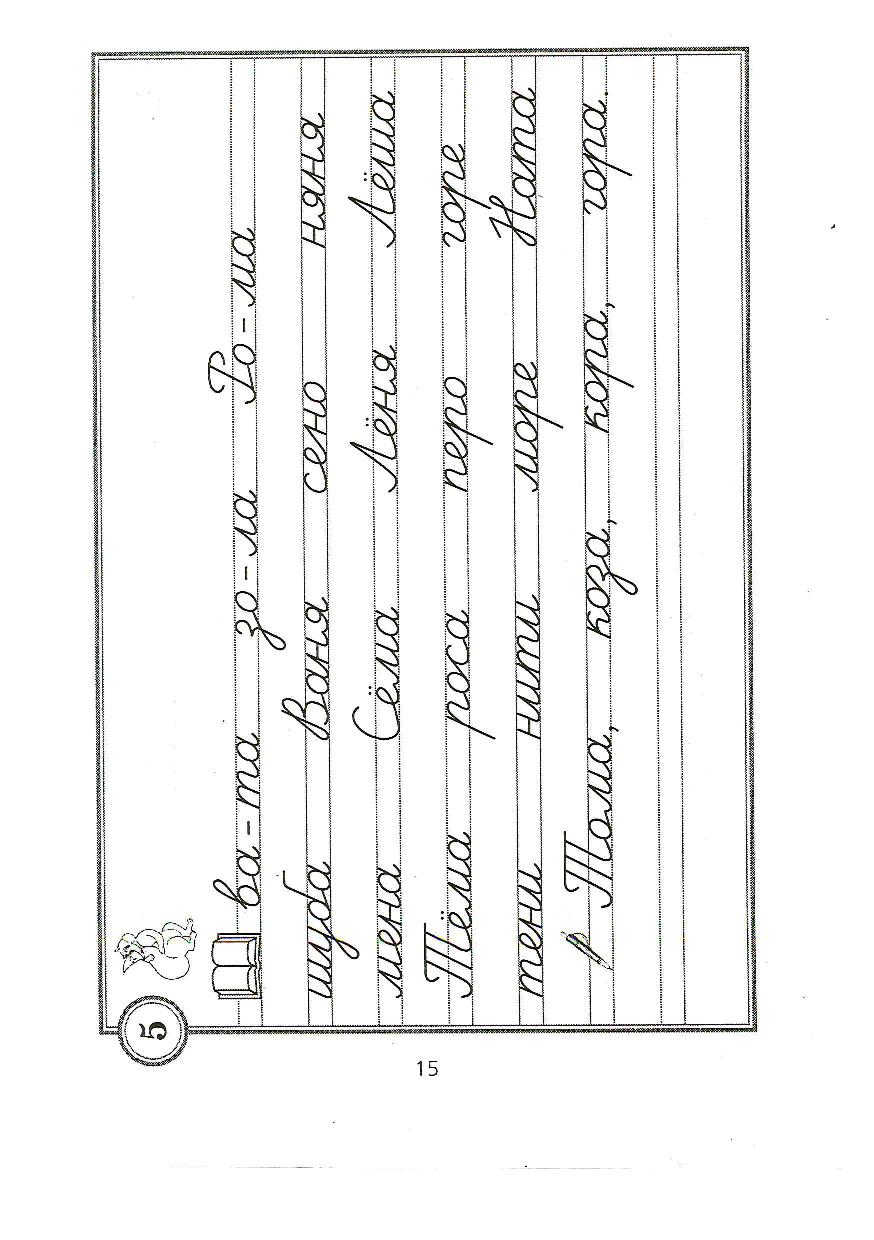 5
ва-та зо-ла Ро-ма
шуба Ваня сено няня
мена Сёма Лёня Лёша
Тёма роса перо горе
тени нити море Ната
Тома, коза, кора, гора.
15